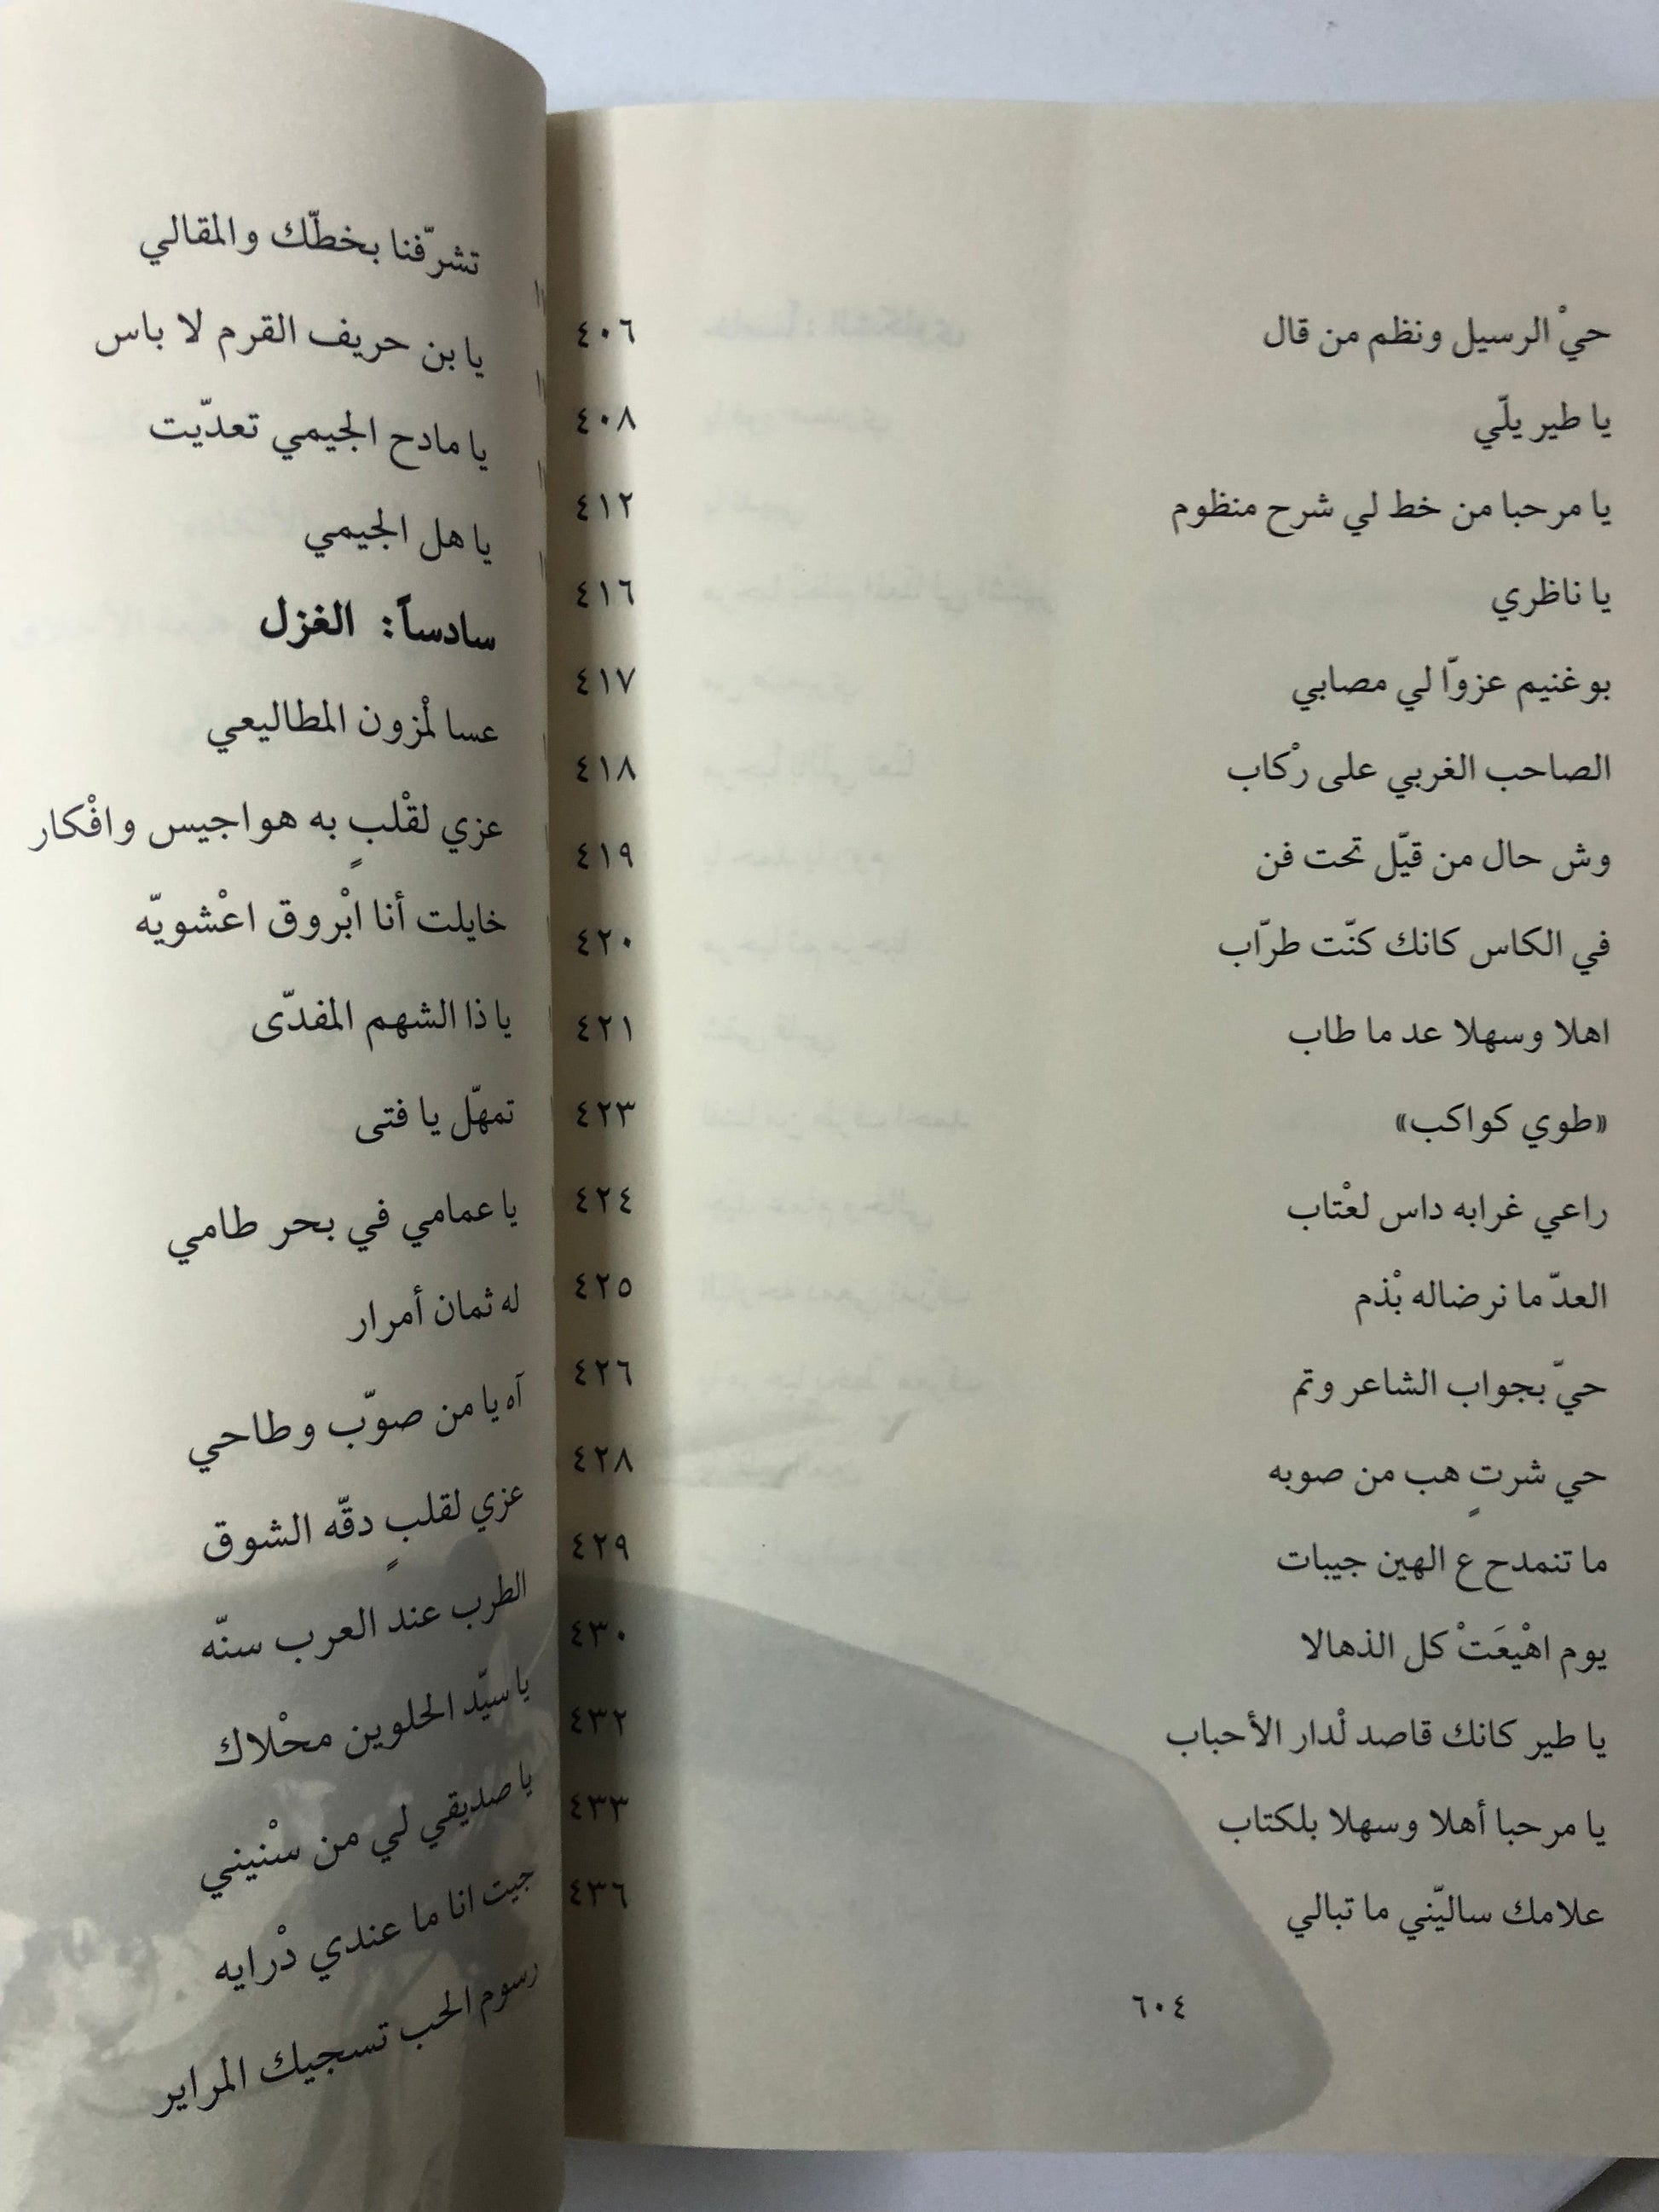 حيْ الرسيل ونظم من قال ٤٠٦
يا طير يلّي ٤٠٨
يا مرحبا من خط لي شرح منظوم ٤١٢
يا ناظري ٤١٦
بو غنيم عزوّا لي مصابي ٤١٧
الصاحب الغربي على رْكاب ٤١٨
وش حال من قيّل تحت فن ٤١٩
في الكاس كانك كنّت طرّاب ٤٢٠
اهلا وسهلا عد ما طاب ٤٢١
«طوي كواكب» ٤٢٣
راعي غرابه داس لعْتاب ٤٢٤
العدّ ما نرضاله بْذم ٤٢٥
حيّ بجواب الشاعر وتم ٤٢٦
حي شرتٍ هب من صوبه ٤٢٨
ما تنمدح ع الهين جيبات ٤٢٩
يوم اهْيعَتْ كل الذهالا ٤٣٠
يا طير كانك قاصد لْدار الأحباب ٤٣٢
يا مرحبا أهلا وسهلا بلكتاب ٤٣٣
علامك ساليّني ما تبالي ٤٣٦
٦٠٤
تشرّفنا بخطّك والمقالي
يا بن حريف القرم لا باس
يا مادح الجيمي تعدّيت
يا هل الجيمي
سادساً: الغزل
عسا لمْزون المطاليعي
عزي لقْلبٍ به هواجيس وافْكار
خايلت أنا ابْروق اعْشويّه
يا ذا الشهم المفدّى
تمهّل يا فتى
يا عمامي في بحر طامي
له ثمان أمرار
آه يا من صوّب وطاحي
عزي لقلبٍ دقّه الشوق
الطرب عند العرب سنّه
يا سيّد الحلوين محْلاك
يا صديقي لي من سنْيني
جيت انا ما عندي دْرايه
رسوم الحب تسجيك المراير